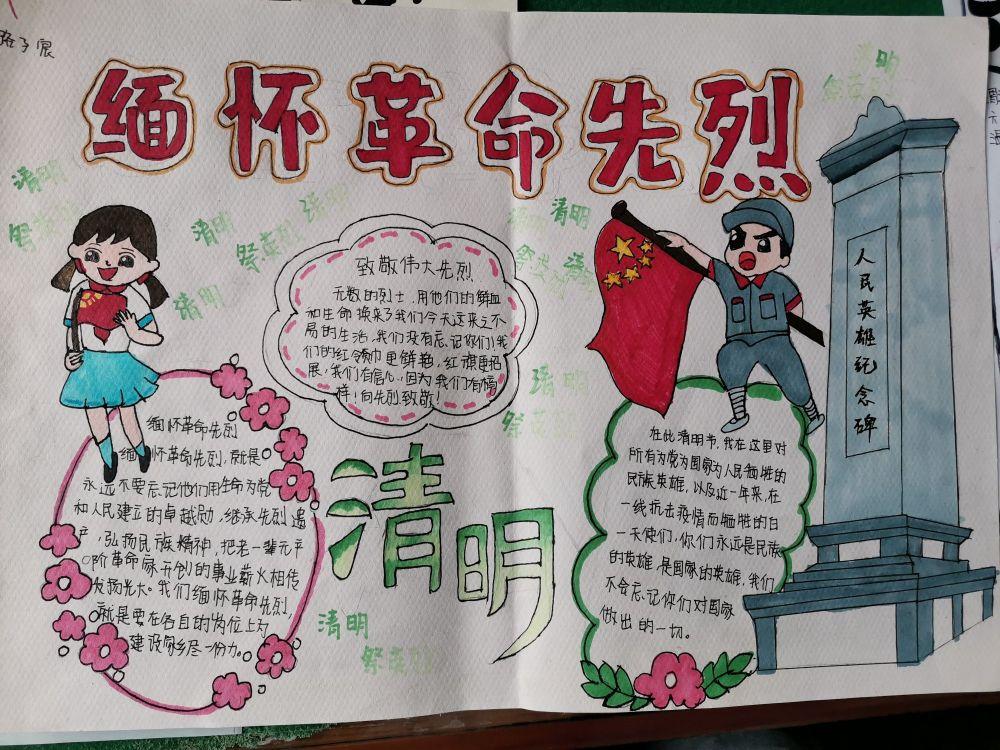 缅怀革命先烈
清明
清明
祭英烈
清明
祭英烈
清明
清明
清明
清明
祭英烈
致敬伟大先烈
无数的烈士,用他们的鲜血
和生命换来了我们今天这来之不
易的生活,我们没有忘记你们!我
们的红领巾更鲜艳,红旗更招
展,我们有信心,因为我们有榜
样!向先烈致敬!
人民英雄纪念碑
缅怀革命先烈
缅怀革命先烈,就是
永远不要忘记他们用生命为党
和人民建立的卓越勋,继承先烈遗
产,弘扬民族精神,把老一辈无产
阶革命家开创的事业薪火相传
发扬光大。我们缅怀革命先烈,
就是要在各自的岗位上为
建设家乡尽一份力。
清明
在此清明节,我在这里对
所有为党为国家为人民牺牲的
民族英雄,以及近一年来,在
一线抗击疫情而牺牲的白
天使们,你们永远是民族
的英雄,是国家的英雄,我们
不会忘记你们对国家
做出的一切。
清明
祭英烈